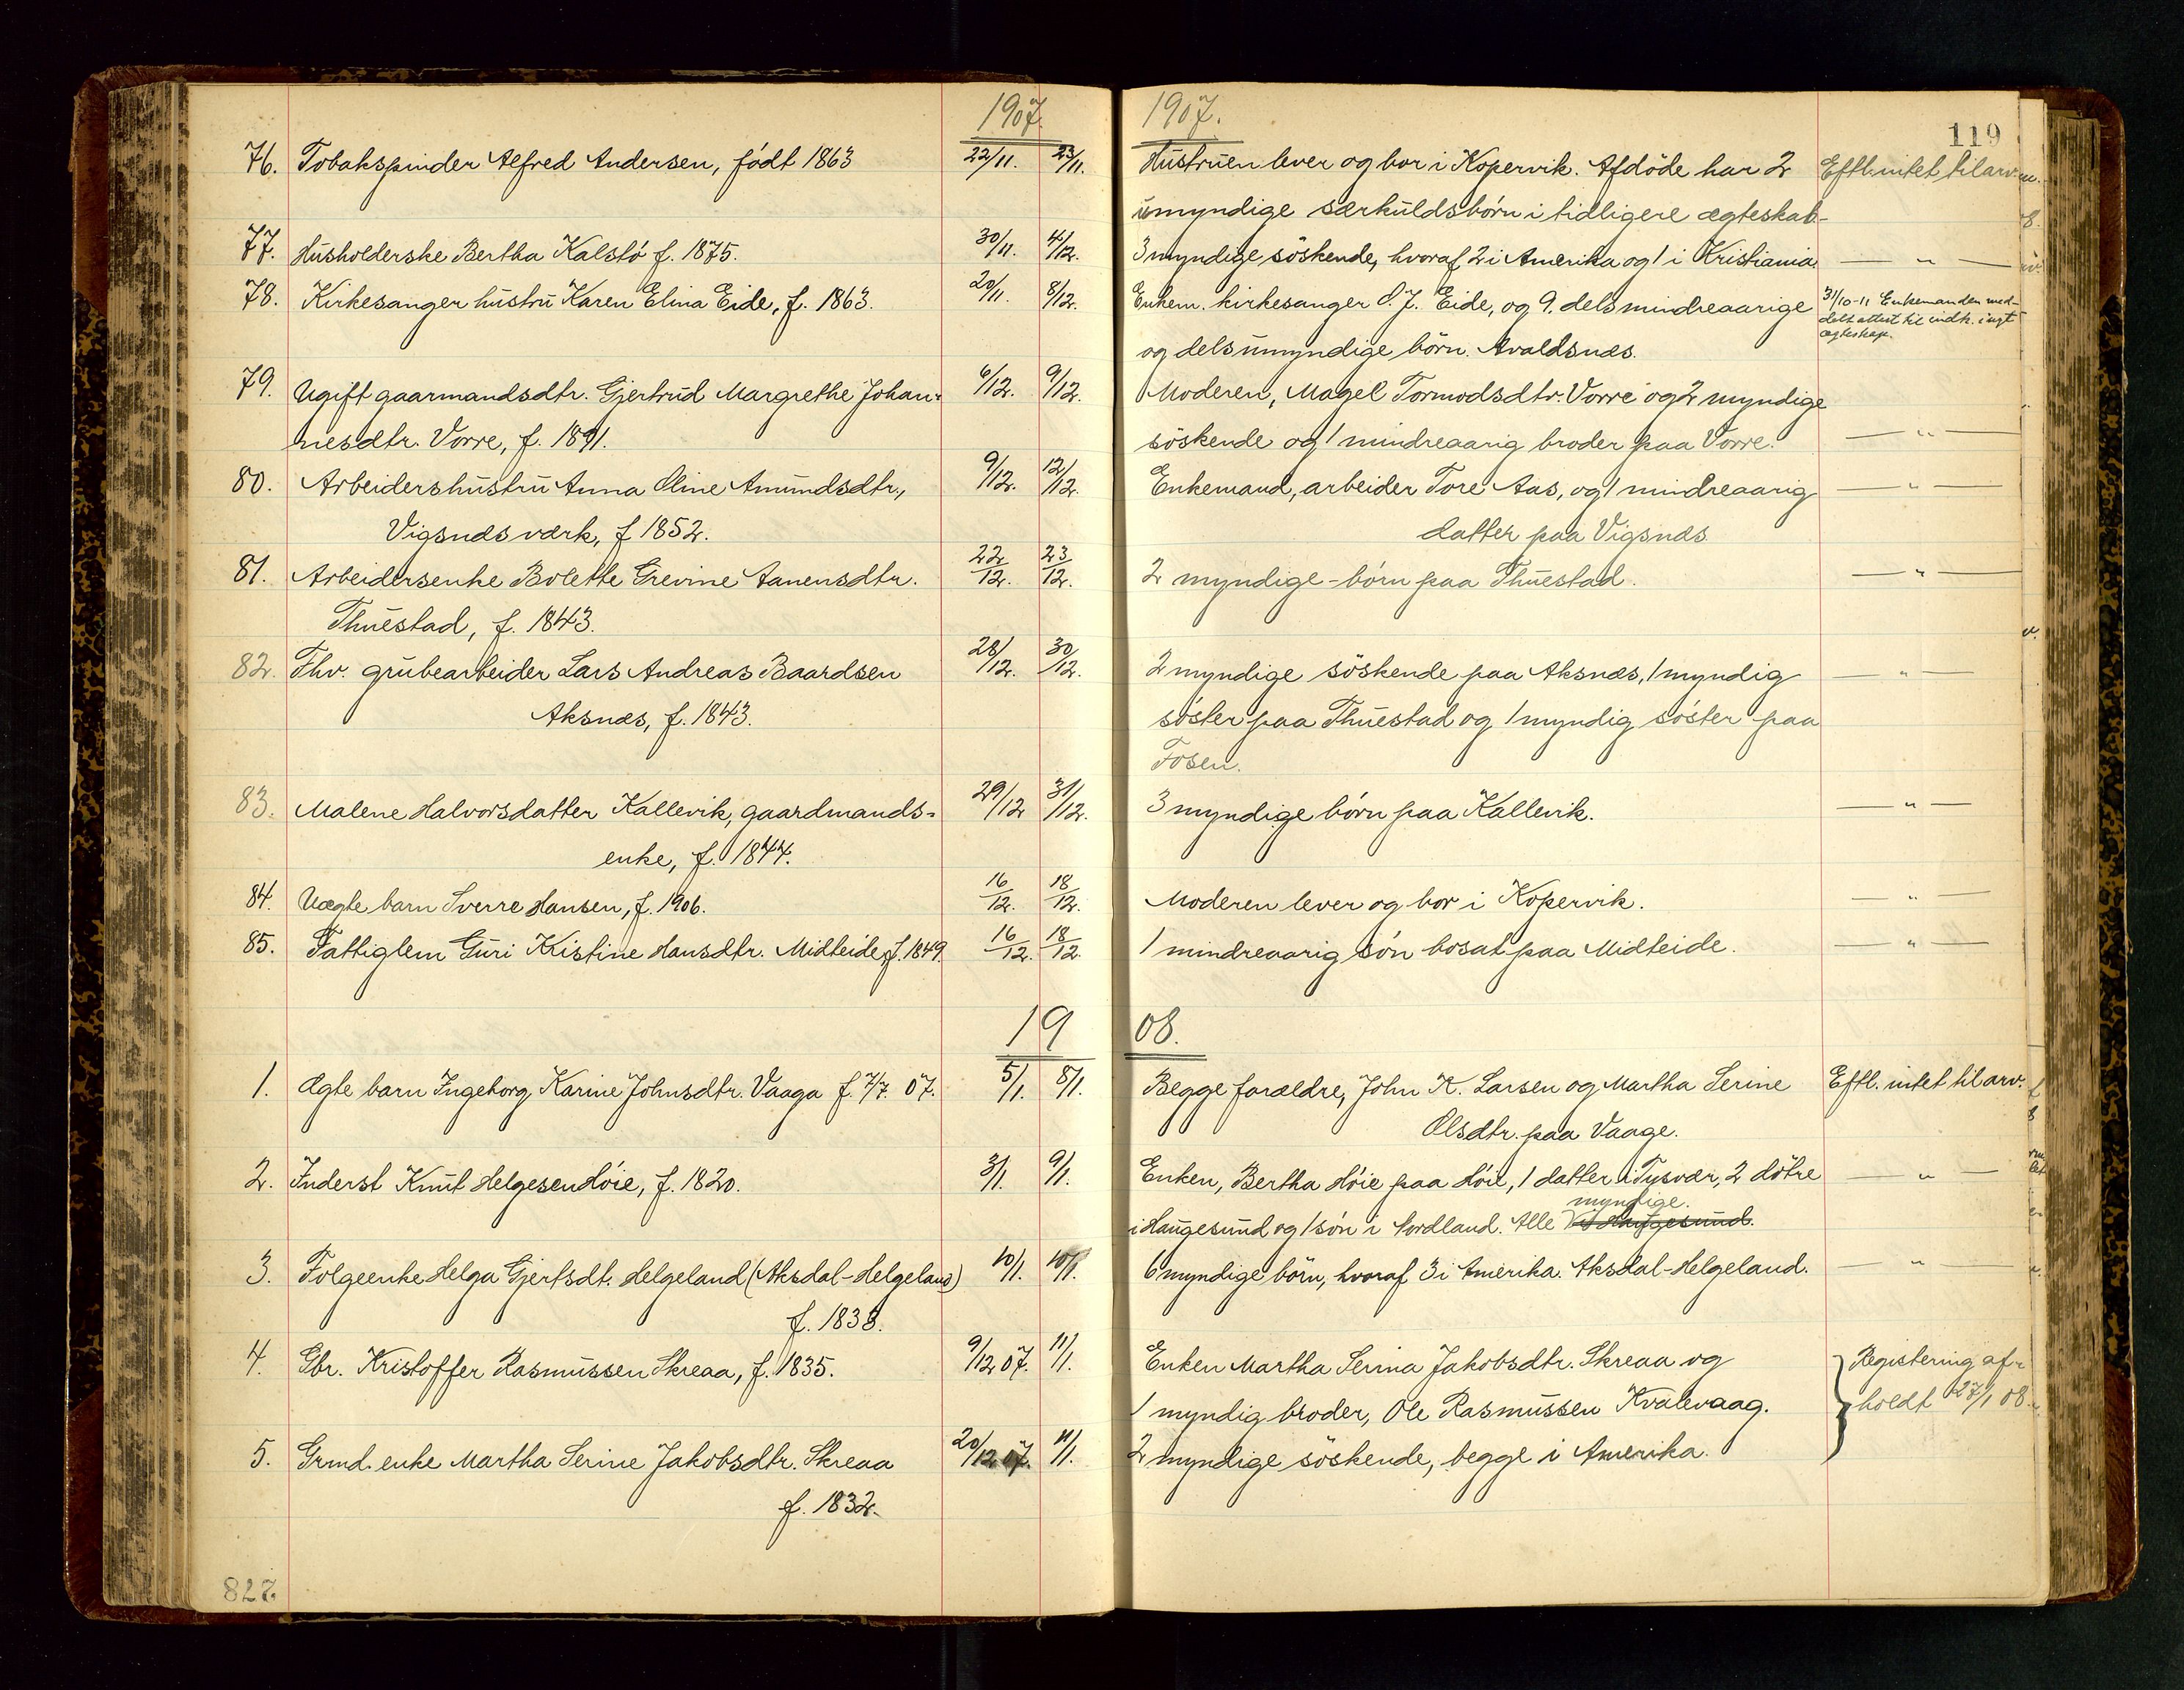 1907.
76. Tobakspinder Alfred Andersen, født 1863 22/11. 23/11.
77. Husholderske Bertha Kalstø f. 1875. 30/11. 4/12.
78. Kirkesanger hustru Karen Elina Eide, f. 1863. 20/11. 8/12.
79. Ugift gaarmandsdtr. Gjertrud Margrethe Johan- 6/12. 9/12.
nesdtr. Vorre, f. 1891.
80. Arbeidershustru Anna Oline Amundsdtr., 9/12. 12/12.
Vigsnæs værk, f 1852.
81. Arbeidersenke Bolette Grevine Aanensdtr. 22/12. 23/12.
Thuestad, f. 1843.
82. Fhv. grubearbeider Lars Andreas Baardsen 28/12. 30/12.
Aksnæs, f. 1843.
83. Malene Halvorsdatter Kallevik, gaardmands- 29/12 31/12.
enke, f. 1844.
84. Uægte barn Sverre Hansen, f. 1906. 16/12. 18/12.
85. Fattiglem Guri Kistine Hansdtr. Midteide, f. 1849. 16/12. 18/12.
19
1. Ægte barn Ingeborg Karine Johnsdtr. Vaaga f. 7/7. 07. 5/1. 8/1.
2. Inderst Knut Helgesen Høie, f. 1820. 3/1. 9/1.
3. Folgeenke Helga Gjertsdt. Helgeland (Aksdal-Helgeland) 10/1. 10/1.
f. 1838.
4. Gbr. Kristoffer Rasmussen Skreaa, f. 1835. 9/12 07. 11/1.
5. Grmd. enke Martha Serine Jakobsdtr. Skreaa 20/12 07. 11/1.
f. 1832.
827.
1907.
119
Hustruen lever og bor i Kopervik. Afdøde har 2 Eftl. intet til arv
umyndige særkuldsbørn i tidligere ægteskab-
3 myndige søskende, hvoraf 2 i Amerika og 1 i Kristiania. — " —
Enkem. kirkesanger O. J. Eide, og 9. dels mindreaarige 31/10-11 Enkemanden med-
delt attest til indk. i nyt
ægteskap.
og dels umyndige börn. Avaldsnæs.
Moderen, Magel Tormodsdtr. Vorre og 2 myndige
söskende og 1 mindreaarig broder paa Vorre. — " —
Enkemand, arbeider Tore Aas, og 1 mindreaarig — " —
datter paa Vigsnæs
2 myndige-børn paa Thuestad. — " —
2 myndige söskende paa Aksnæs, 1 myndig — " —
søster paa Thuestad og 1 myndig søster paa
Fosen.
3 myndige børn paa Kallevik. — " —
Moderen lever og bor i Kopervik. — " —
1 mindreaarig søn bosat paa Midteide. — " —
08.
Begge forældre, John K. Larsen og Martha Serine Eftl. intet til arv.
Olsdtr. paa Vaage.
Enken, Bertha Høie paa Høie, 1 datter i Tysvær, 2 døtre — " —
myndige.
i Haugesund og 1 søn i Nordland. Alle Haugesund.
6 myndige börn, hvoraf 3 i Amerika. Aksdal-Helgeland. — " —
Enken Martha Serina Jakobsdtr. Skreaa og Registering af-
1 myndig broder, Ole Rasmussen Kvalevaag. holdt 27/1 08.
2 myndige söskende, begge i Amerika.